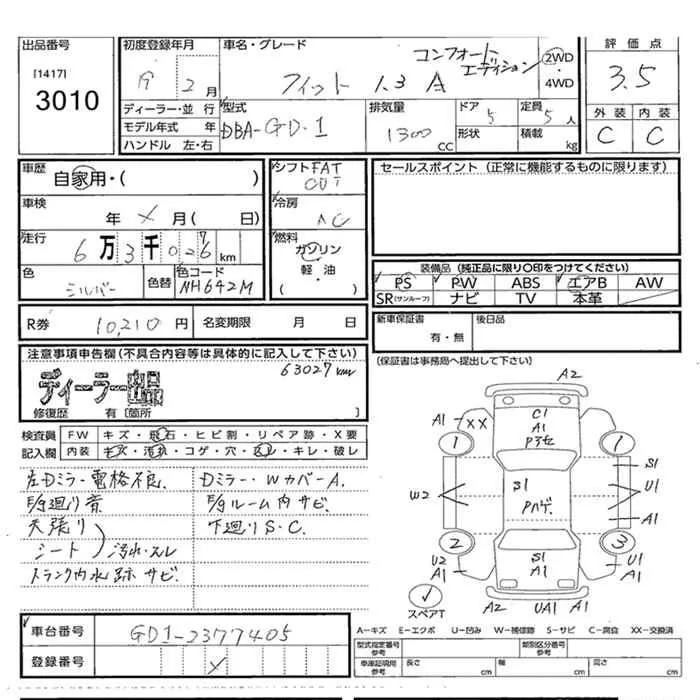 出品番号
[1417]
3010
初度登録年月
19 2月
ディーラー・並 行
モデル年式 年
ハンドル 左・右
車名・グレード
コンフォート
エディション
フィット 1.3 A
2WD
・
4WD
型式
DBA-GD・1
排気量
1300
CC
ドア 5
形状
定員 5人
積載 kg
評価点
3.5
外装 内装
C C
車歴
自家用・( )
車検
年 × 月 ( 日)
走行
6万3千027 km
色
シルバー
色替
色コード
NH642M
シフト FAT
冷房
AC
燃料
ガソリン
軽・油
・( )
セールスポイント (正常に機能するものに限ります)
装備品 (純正品に限り〇印をつけてください)
PS PW ABS エアB AW
SR(サンルーフ) ナビ TV 本革
R券 10,210 円 名変期限 月 日
新車保証書
有・無
後日品
注意事項申告欄(不具合内容等は具体的に記入して下さい)
63027km
ディーラー出品
修復歴 有[箇所 ]
(保証書は事務局へ提出して下さい)
検査員 FW キズ・飛石・ヒビ割・リペア跡・X要
記入欄 内装 キズ・汚れ・コゲ・穴・スレ・キレ・破レ
左Dミラー電格不良. Dミラー・Wカバー A.
E/g廻り音 E/gルーム内サビ.
天張り 下廻りS.C.
シート 汚れ・スレ
トランク内水跡 サビ.
A2
A1 XX
C1
A1
1 1
S1
U1
A1
W2
S1
2 3
U2
A1
S1
A1
U1
A1
スペアT
A2 UA1 A2
車台番号 GD1-2377405
登録番号
A−キズ E−エクボ U−凹み W−補修跡 S−サビ C−腐食 XX−交換済
型式指定番号
参考
類別区分番号
参考
車庫証明用
参考
長さ cm 幅 cm 高さ cm